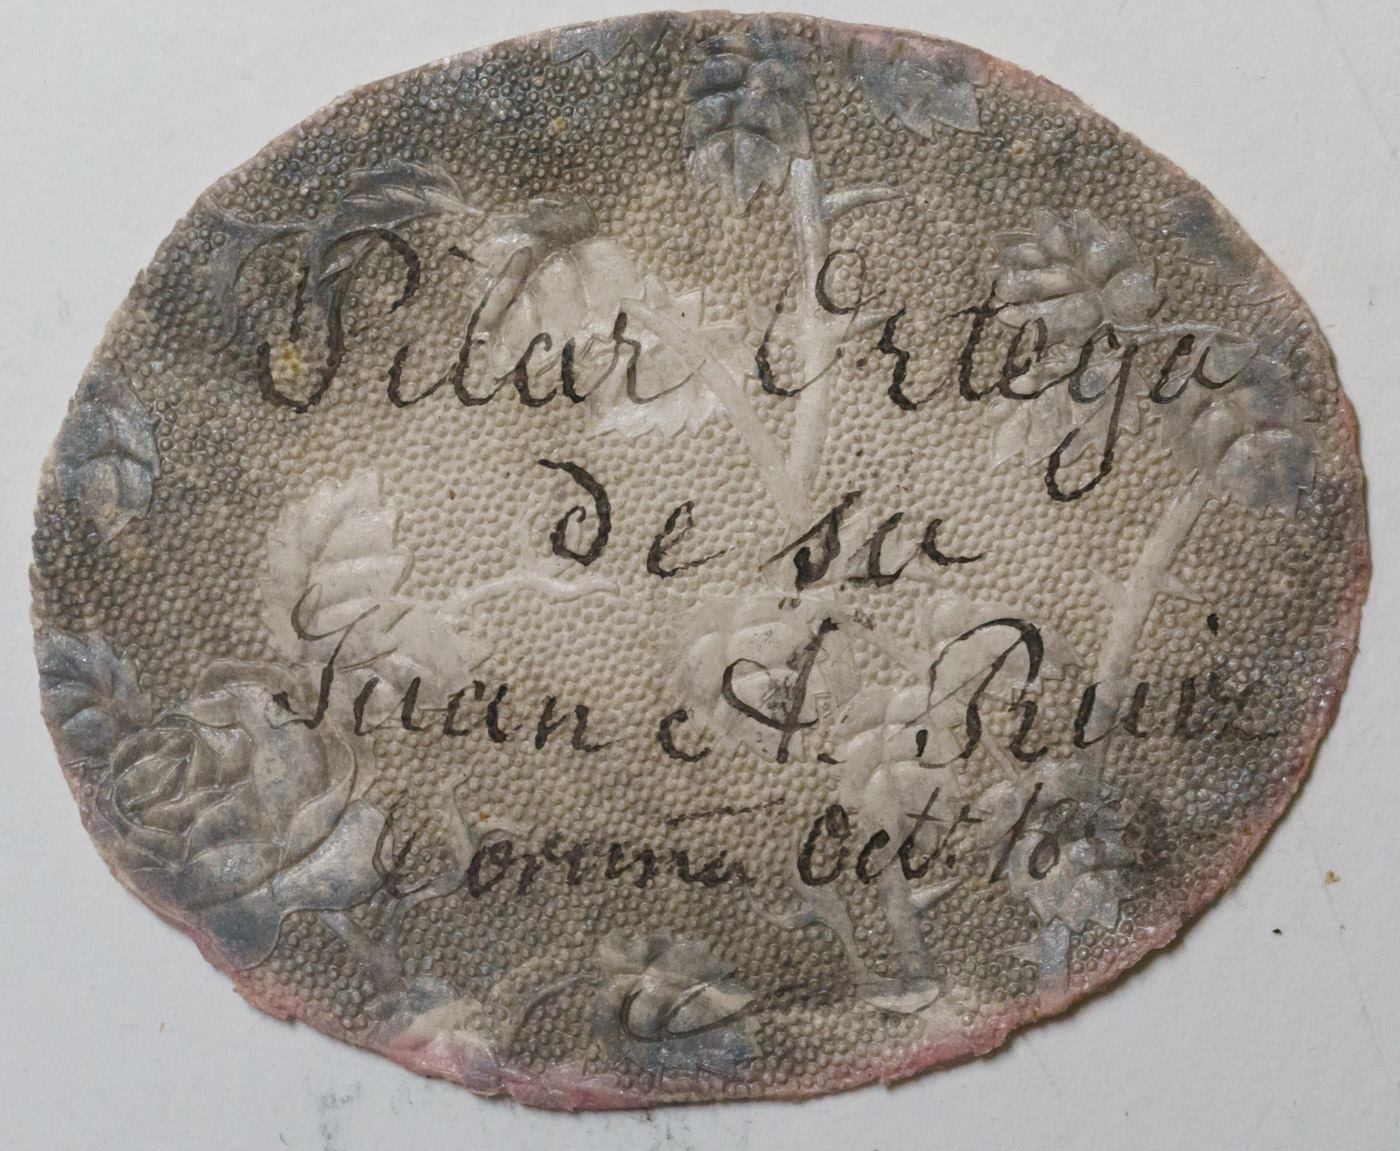 Pilar Ortega
de su
Juan A. Ruiz
Oct. 18